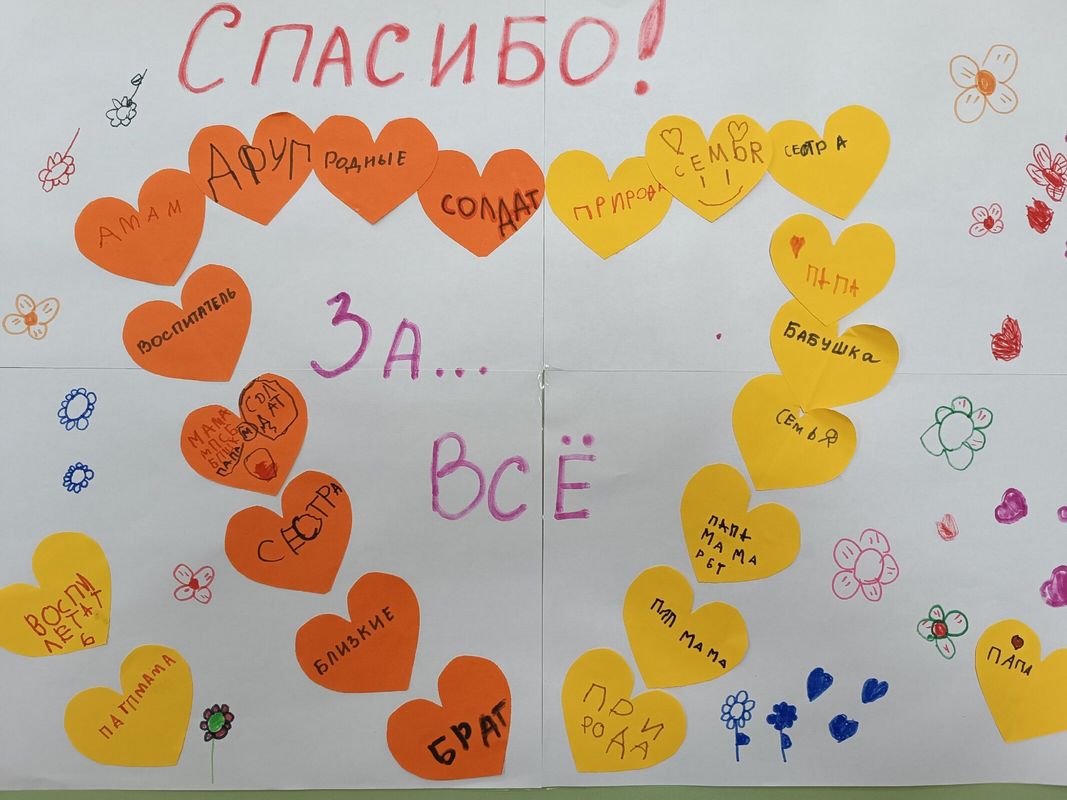 СПАСИБО!
ДРУГ
РОДНЫЕ
СЕМЬЯ
СЕСТРА
АМАМ
СОЛДАТ
ПРИРОДА
ПАПА
ВОСПИТАТЕЛЬ
ЗА...
БАБУШКА
МАМА
СОЛ
ДАТ
ПАПА
СЕМЬЯ
ВСЁ
СЕСТРА
ПАПА
МАМА
РБТ
ВОСПИ
ЛЕТАТ
Ь
БЛИЗКИЕ
ПАП МАМА
ПАПА
ПАПМАМА
БРАТ
ПРИ
РОДА